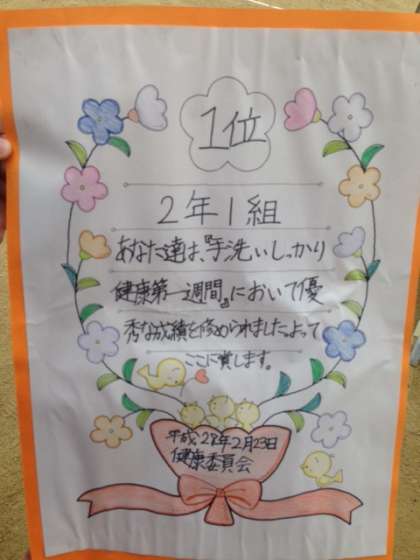 1位
2年1組
あなた達は、『手洗いしっかり
健康第一週間』において優
秀な成績を修められました。よって
ここに賞します。
平成28年2月23日
健康委員会